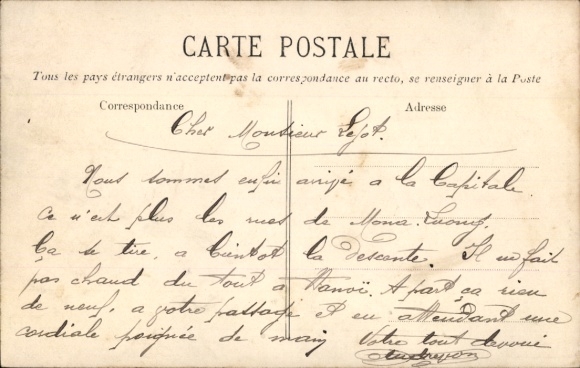 CARTE POSTALE
Tous les pays étrangers n'acceptent pas la correspondance au recto, se renseigner à la Poste
Correspondance
Adresse
Cher Monsieur
Nous sommes enfin arrivé a la Capitale.
Ce n'est plus les rues de Mona-Luong.
Ça se tire, a bientot la descente. Il ne fait
pas chaud du tout à Hanoï. A part ça rien
de neuf, a votre passage et en attendant une
cordiale poignée de main Votre tout devoué